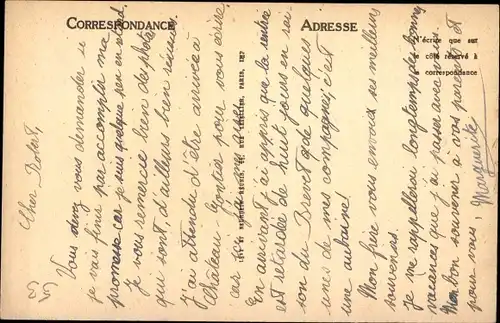 CORRESPONDANCE
ADRESSE
N'écrire que sur
le côté réservé à
la correspondance
LÉVY ET NEURDEIN RÉUNIS, 44, RUE LETELLIER, PARIS, IMP
Cher Robert,
Vous devez vous demander si
je vais finir par accomplir ma
promesse car je suis quelque peu en retard.
je vous remercie bien des photos
qui sont, d'ailleurs bien réussies.
J'ai attendu d'être arrivée à
Château-Gontier pour vous écrire
car
En arrivant j'ai appris que la rentrée
est retardée de huit jours en rai-
son du Brevet que quelques
unes de mes compagnes, c'est
une aubaine!
Mon frère vous envoie ses meilleurs
souvenirs.
je me rappellerai longtemps des bonnes
vacances que j'ai passées avec vous
Mon bon souvenir à vos parents et
pour vous! Marguerite